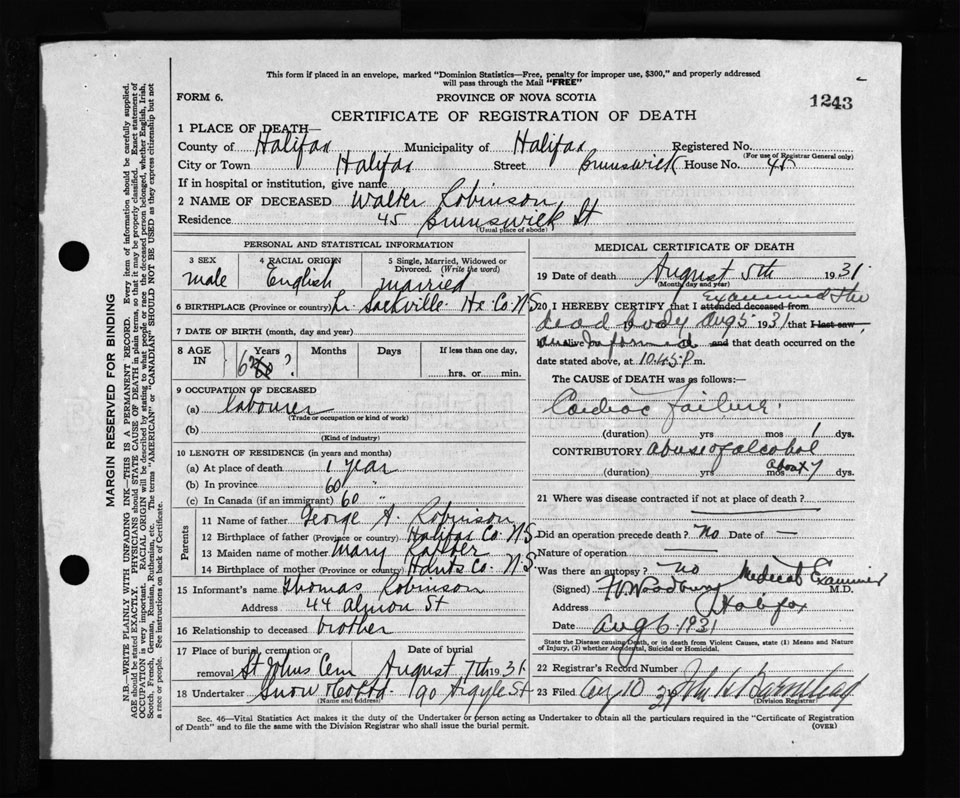 This form if placed in an envelope, marked "Dominion Statistics—Free, penalty for improper use, $300," and properly addressed
will pass through the Mail "FREE"
FORM 6.
PROVINCE OF NOVA SCOTIA
1243
CERTIFICATE OF REGISTRATION OF DEATH
1 PLACE OF DEATH—
County of Halifax Municipality of Halifax Registered No.
(For use of Registrar General only)
City or Town Halifax Street Brunswick House No. 45
If in hospital or institution, give name
2 NAME OF DECEASED Walter Robinson
Residence 45 Brunswick St
(Usual place of abode)
PERSONAL AND STATISTICAL INFORMATION
3 SEX 4 RACIAL ORIGIN 5 Single, Married, Widowed or
Divorced. (Write the word)
male English married
6 BIRTHPLACE (Province or country) Lr. Sackville Hx Co. N S
7 DATE OF BIRTH (month, day and year)
8 AGE IN Years Months Days If less than one day,
hrs. or min.
9 OCCUPATION OF DECEASED
(a) labourer
(Trade or occupation or kind of work)
(b)
(Kind of industry)
10 LENGTH OF RESIDENCE (in years and months)
(a) At place of death 1 year
(b) In province 60 "
(c) In Canada (if an immigrant) 60 "
Parents
11 Name of father George A. Robinson
12 Birthplace of father (Province or country) Halifax Co. N S.
13 Maiden name of mother Mary
14 Birthplace of mother (Province or country) Hants Co. N S.
15 Informant's name Thomas Robinson
Address 44 Almon St
16 Relationship to deceased brother
17 Place of burial, cremation or Date of burial
removal St Johns Cem August 7th 1931
18 Undertaker Snow & Co Ltd. 190 Argyle St
(Name and address)
MEDICAL CERTIFICATE OF DEATH
19 Date of death August 5th 1931
(Month, day and year)
20 I HEREBY CERTIFY that I attended deceased from examined the
dead body Aug 5 1931 that I last saw
alive informed and that death occurred on the
date stated above, at 10.45 P m.
The CAUSE of DEATH was as follows:—
Cardiac failure.
(duration) yrs mos 1 dys.
CONTRIBUTORY abuse of alcohol
(duration) yrs mos about 7 dys.
21 Where was disease contracted if not at place of death?
Did an operation precede death? no Date of —
Nature of operation
Was there an autopsy? no Medical Examiner
(Signed) F.V. Woodbury M.D.
Address Halifax
Date Aug 6 1931
State the Disease causing Death, or in death from Violent Causes, state (1) Means and Nature
of Injury, (2) whether Accidental, Suicidal or Homicidal.
22 Registrar's Record Number
23 Filed Aug 10 31 John H Barnstead
(Division Registrar)
Sec. 46—Vital Statistics Act makes it the duty of the Undertaker or person acting as Undertaker to obtain all the particulars required in the "Certificate of Registration
of Death" and to file the same with the Division Registrar who shall issue the burial permit.
(OVER)
MARGIN RESERVED FOR BINDING
N.B.—WRITE PLAINLY WITH UNFADING INK—THIS IS A PERMANENT RECORD. Every item of information should be carefully supplied.
AGE should be stated EXACTLY. PHYSICIANS should STATE CAUSE OF DEATH in plain terms, so that it may be properly classified. Exact statement of
OCCUPATION is very important. RACIAL ORIGIN will be described by stating to what people or race the deceased person belonged, whether English, Irish,
Scotch, French, German, Russian, Ruthenian, etc. The terms "AMERICAN" or "CANADIAN" SHOULD NOT BE USED as they express citizenship but not
a race or people. See instructions on back of Certificate.